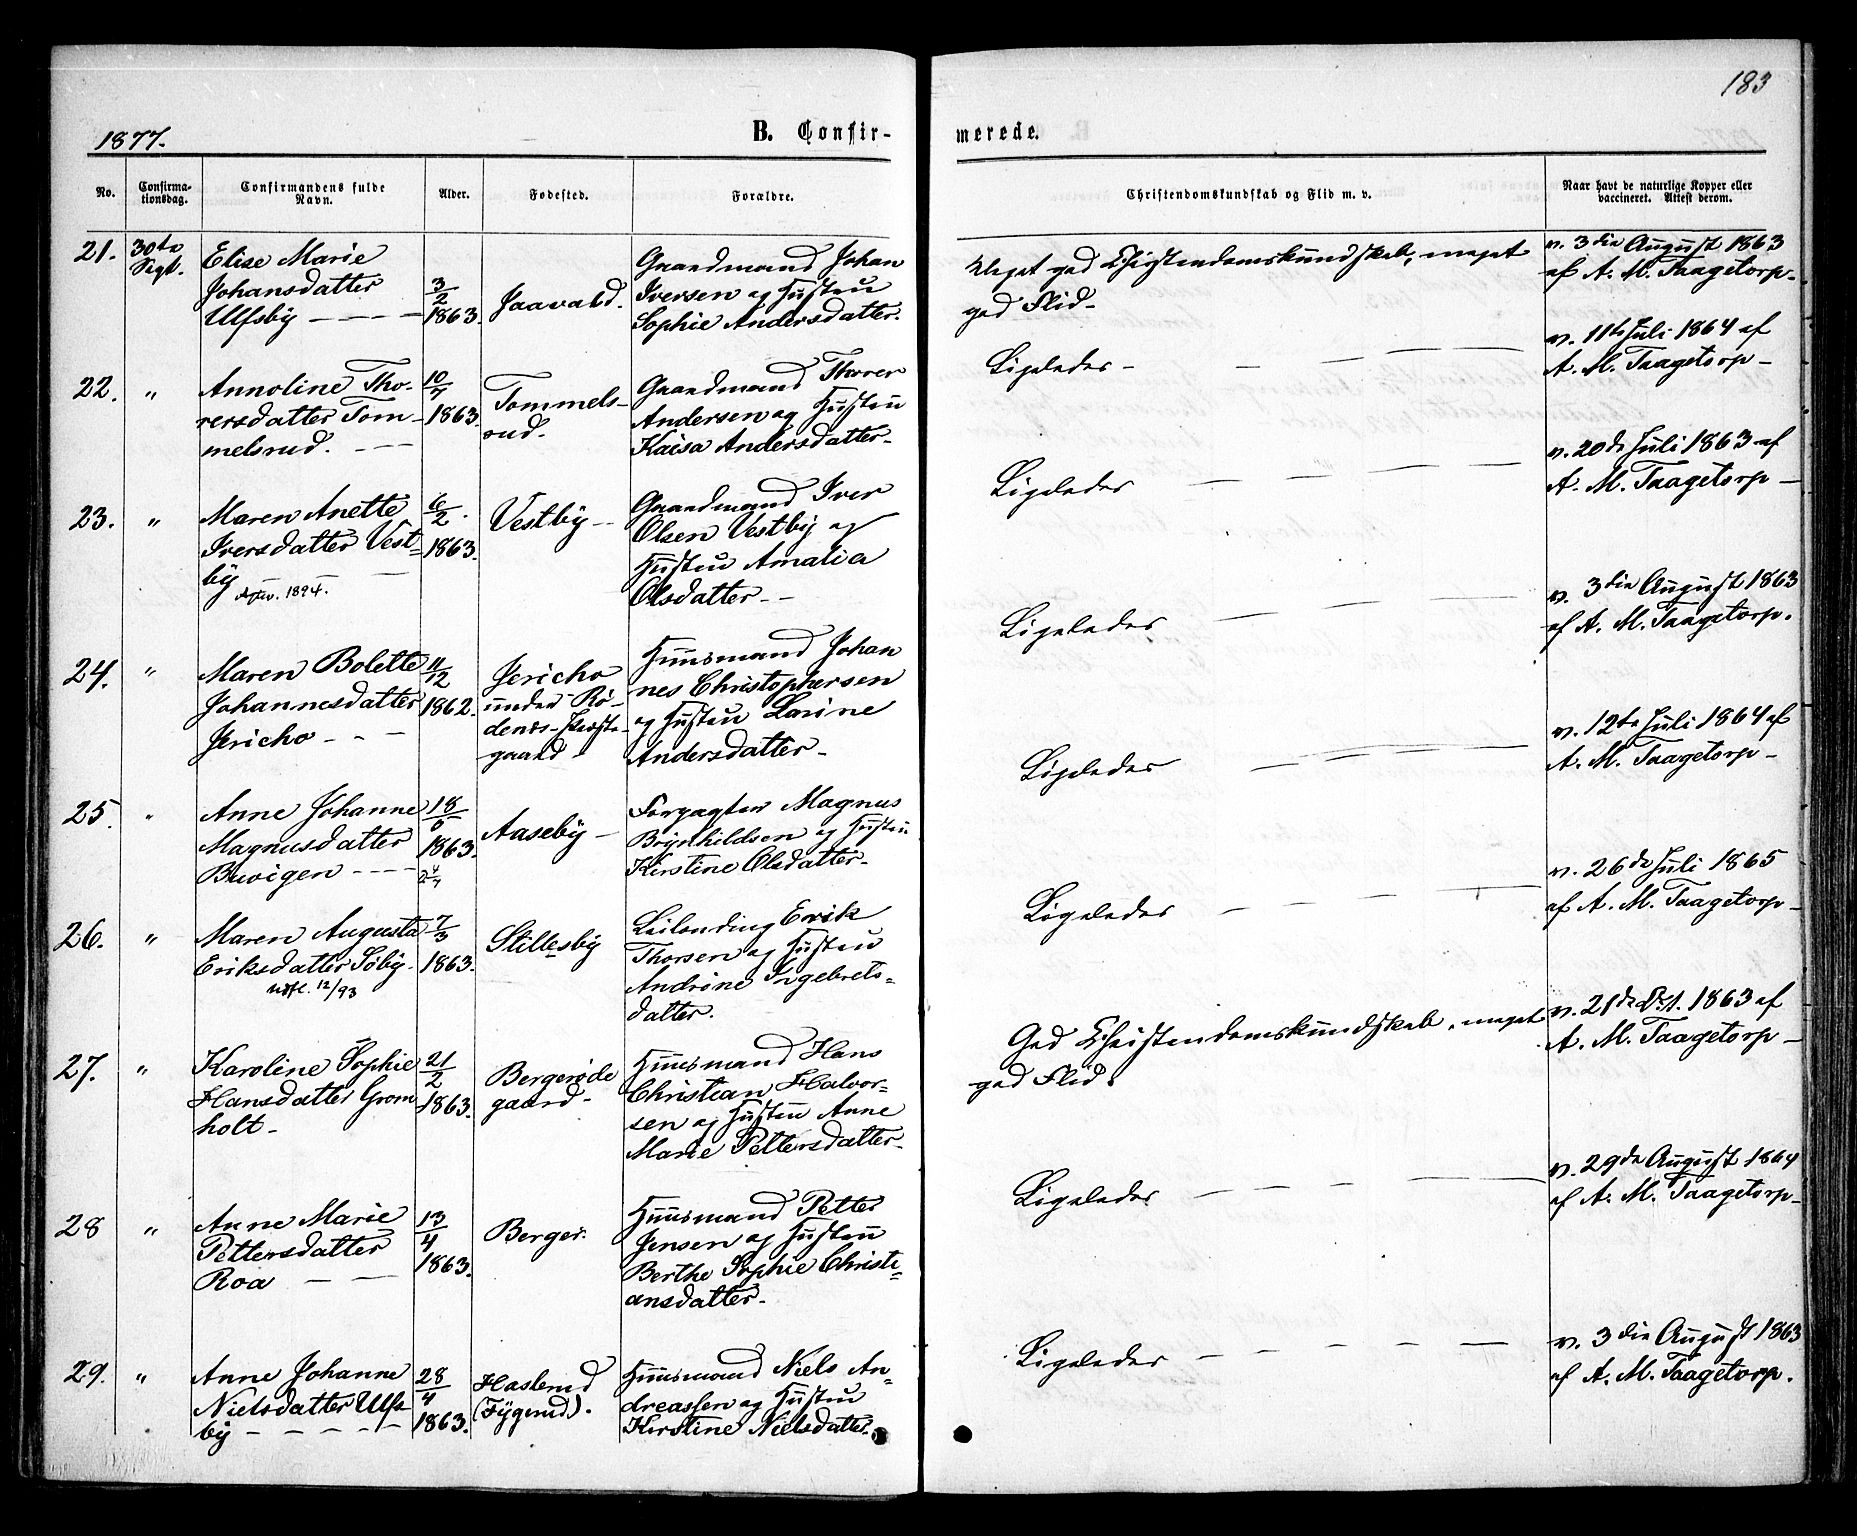 183
1877.
B. Confir-
merede.
No.
Confirma-
tionsdag.
Confirmandens fulde
Navn.
Alder.
Fødested.
Forældre.
Christendomskundskab og Flid m. v.
Naar havt de naturlige Kopper eller
vaccineret. Attest derom.
21.
30te
Sept.
Elise Marie
Johansdatter
Ulfsby - - -
3/2
1863.
Jaavald.
Gaardmand Johan
Iversen og Hustru
Sophie Andersdatter.
Meget god Christendomskundskab, meget
god Flid-
v. 3die August 1863
af A. M. Taagetorp-
22.
"
Annoline Tho-
rersdatter Tom-
melsrud. - -
10/7
1863.
Tommels-
rud-
Gaardmand Thorer
Andersen og Hustru
Kaisa Andersdatter-
Ligeledes - - - - -
v. 11te Juli 1864 af
A. M. Taagetorp-
23.
"
Maren Anette
Iversdatter Vest-
by - - -
1894.
6/2.
1863.
Vestby -
Gaardmand Iver
Olsen Vestby og
Hustru Amalia
Olsdatter- -
Ligeledes - - - - -
v. 20de Juli 1863 af
A. M. Taagetorp-
24.
"
Maren Bolette
Johannesdatter
Jericho- - -
11/12
1862.
Jericho
under Rø-
denæs-Præste-
gaard-
Huusmand Johan
nes Christophersen
og Hustru Larine
Andersdatter-
Ligeledes - - - -
v. 3die August 1863
af A. M. Taagetorp.
25.
"
Anne Johanne
Magnusdatter
Buvigen - - - -
18/6
1863.
24/7
Aaseby -
Forpagter Magnus
Brynhildsen og Hustru
Kirstine Olsdatter-
Ligeledes - - - - -
v. 12te Juli 1864 af
A. M. Taagetorp-
26.
"
Maren Augusta
Eriksdatter Søby-
Udfl. 12/93
7/3
1863.
Stillesby
Leilending Erik
Thorsen og Hustru
Andrine Ingebrets-
datter.
Ligeledes - - - - -
v. 26de Juli 1865
af A. M. Taagetorp-
27.
"
Karoline Sophie
Hansdatter Grom
holt-
21/2
1863.
Bergerøde
gaard-
Huusmand Hans
Christian Halvor-
sen og Hustru Anne
Marie Pettersdatter-
God Christendomskundskab, meget
god Flid.
v. 21de Oct. 1863 af
A. M. Taagetorp-
28
"
Anne Marie
Pettersdatter
Roa - -
13/4
1863.
Berger.
Huusmand Petter
Jensen og Hustru
Berthe Sophie Christi-
ansdatter-
Ligeledes - - - - -
v. 29de August 1864
af A. M. Taagetorp-
29.
"
Anne Johanne
Nielsdatter Ulfs
by - - - - -
28/4
1863.
Haslerud
(Fygerud).
Huusmand Niels An-
dreassen og Hustru
Kirstine Nielsdatter.
Ligeledes - - - - -
v. 3die August 1863
af A. M. Taagetorp.